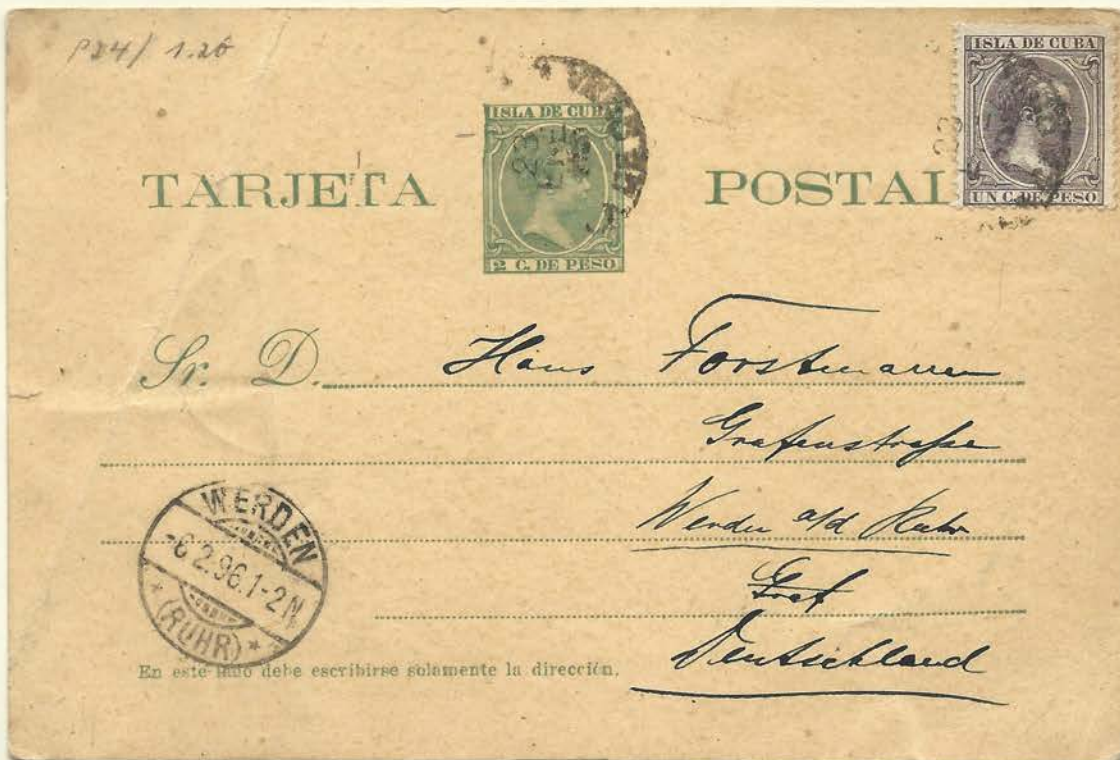 P24/ 1.20
ISLA DE CUBA
ISLA DE CUBA
23
23
TARJETA POSTAL
2 C. DE PESO
UN C. DE PESO
Sr. D. Hans Forstmann
Grafenstrasse
Werden a/d Ruhr
Deutschland
WERDEN
-6.2.96.1-2N.
*(RUHR)*
En este lado debe escribirse solamente la dirección.